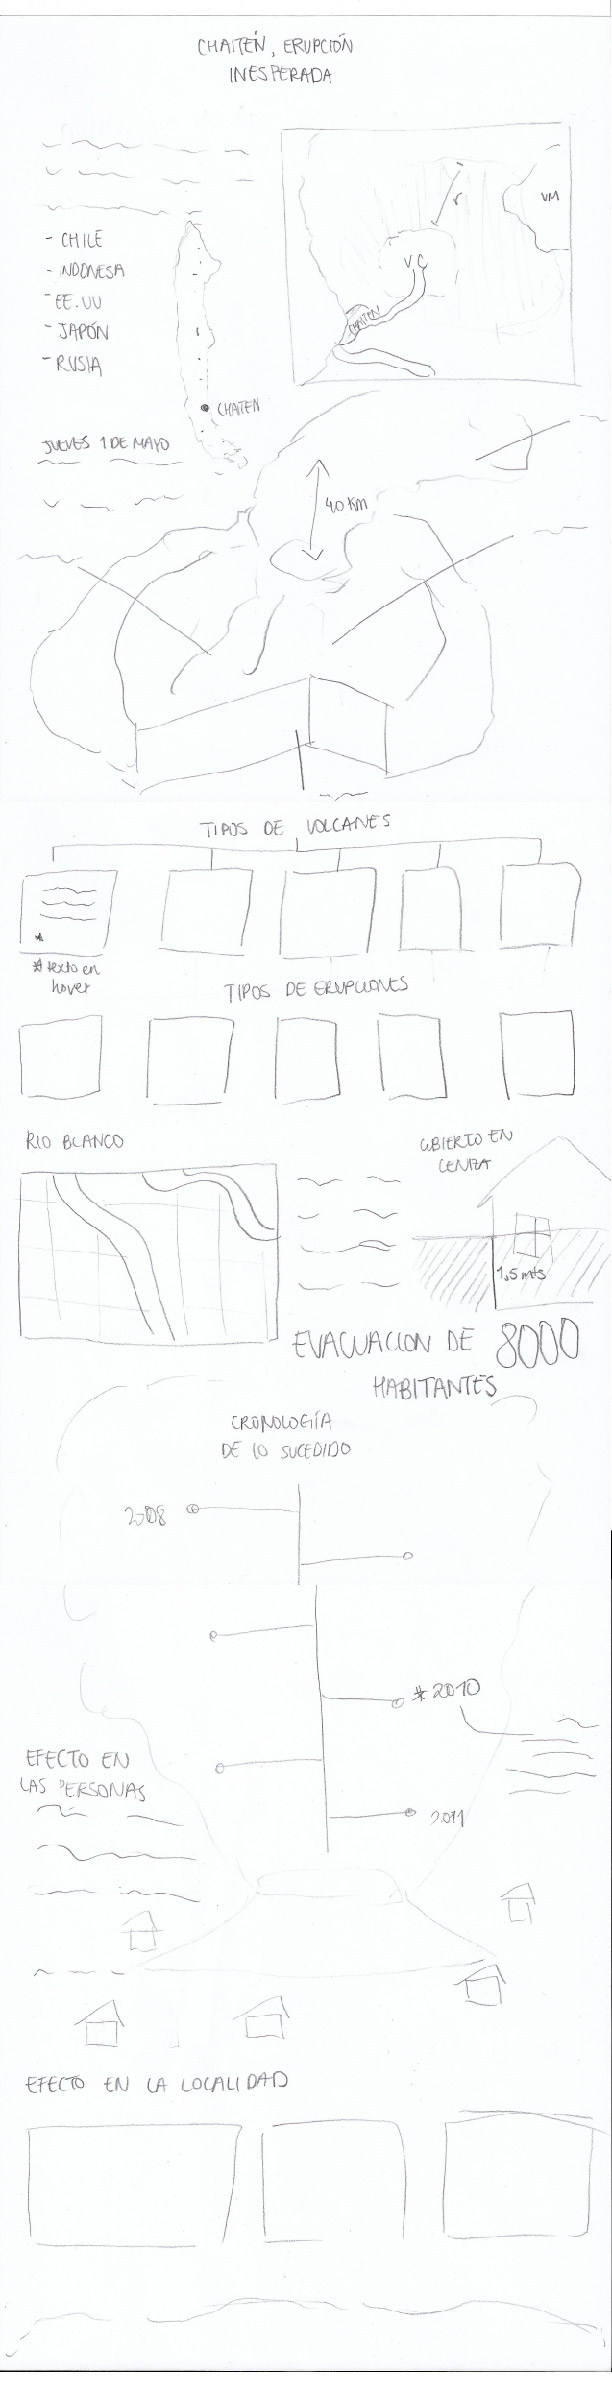 CHAITÉN, ERUPCIÓN
INESPERADA
VM
r
VC
CHAITEN
- CHILE
- INDONESA
- EE.UU
- JAPÓN
- RUSIA
CHAITEN
JUEVES 1 DE MAYO
40 KM
TIPOS DE VOLCANES
* texto en
hover
TIPOS DE ERUPCIONES
RIO BLANCO
CUBIERTO EN
CENIZA
1,5 mts
EVACUACION DE 8000
HABITANTES
CRONOLOGÍA
DE LO SUCEDIDO
2008
* 2010
EFECTO EN
LAS PERSONAS
2011
EFECTO EN LA LOCALIDAD